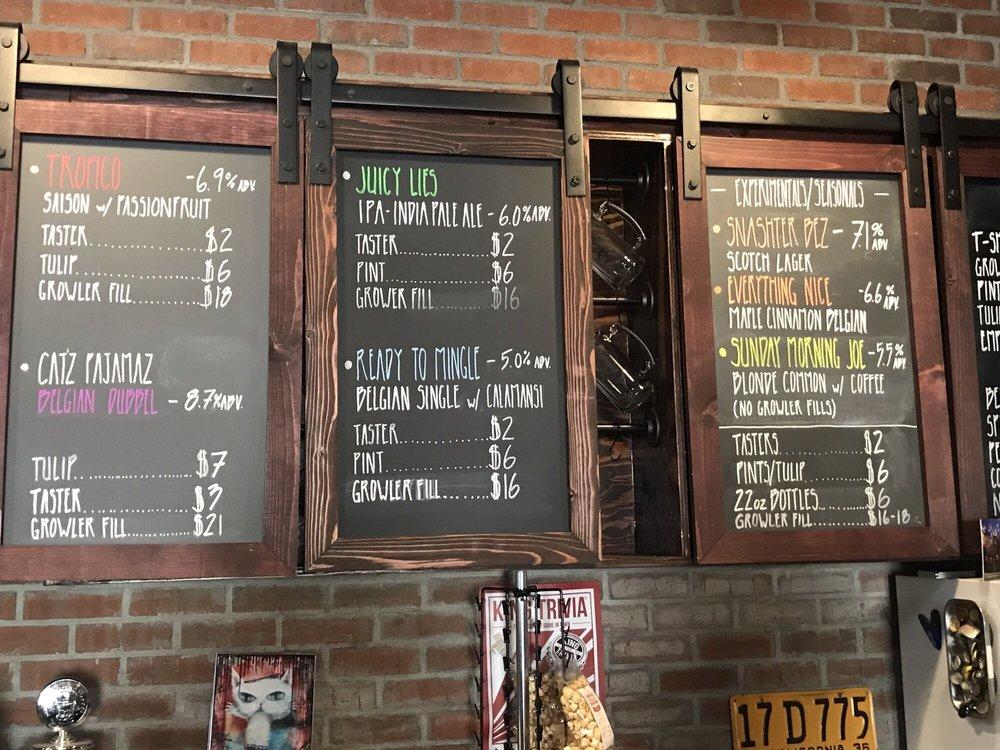 TROPICO -6.9% ABV.
SAISON w/ PASSIONFRUIT
TASTER..................$2
TULIP...................$6
GROWLER FILL............$18
CAT'Z PAJAMAZ
BELGIAN DUBBEL - 8.7% ABV.
TULIP...................$7
TASTER..................$3
GROWLER FILL............$21
JUICY LIES
IPA-INDIA PALE ALE - 6.0% ABV.
TASTER..................$2
PINT....................$6
GROWER FILL.............$16
READY TO MINGLE - 5.0% ABV.
BELGIAN SINGLE w/ CALAMANSI
TASTER..................$2
PINT....................$6
GROWLER FILL............$16
— EXPERIMENTALS/SEASONALS —
SNASHTER BEZ - 7.1% ABV
SCOTCH LAGER
EVERYTHING NICE -6.6% ABV.
MAPLE CINNAMON BELGIAN
SUNDAY MORNING JOE -5.5% ABV.
BLONDE COMMON w/ COFFEE
(NO GROWLER FILLS)
TASTERS.................$2
PINTS/TULIP.............$6
22oz BOTTLES............$6
GROWLER FILL............$16-18
T-SH
GROW
PINT
TULI
EMP
BE
SP
PE
KING TRIVIA
17 D 775
CALIFORNIA 36